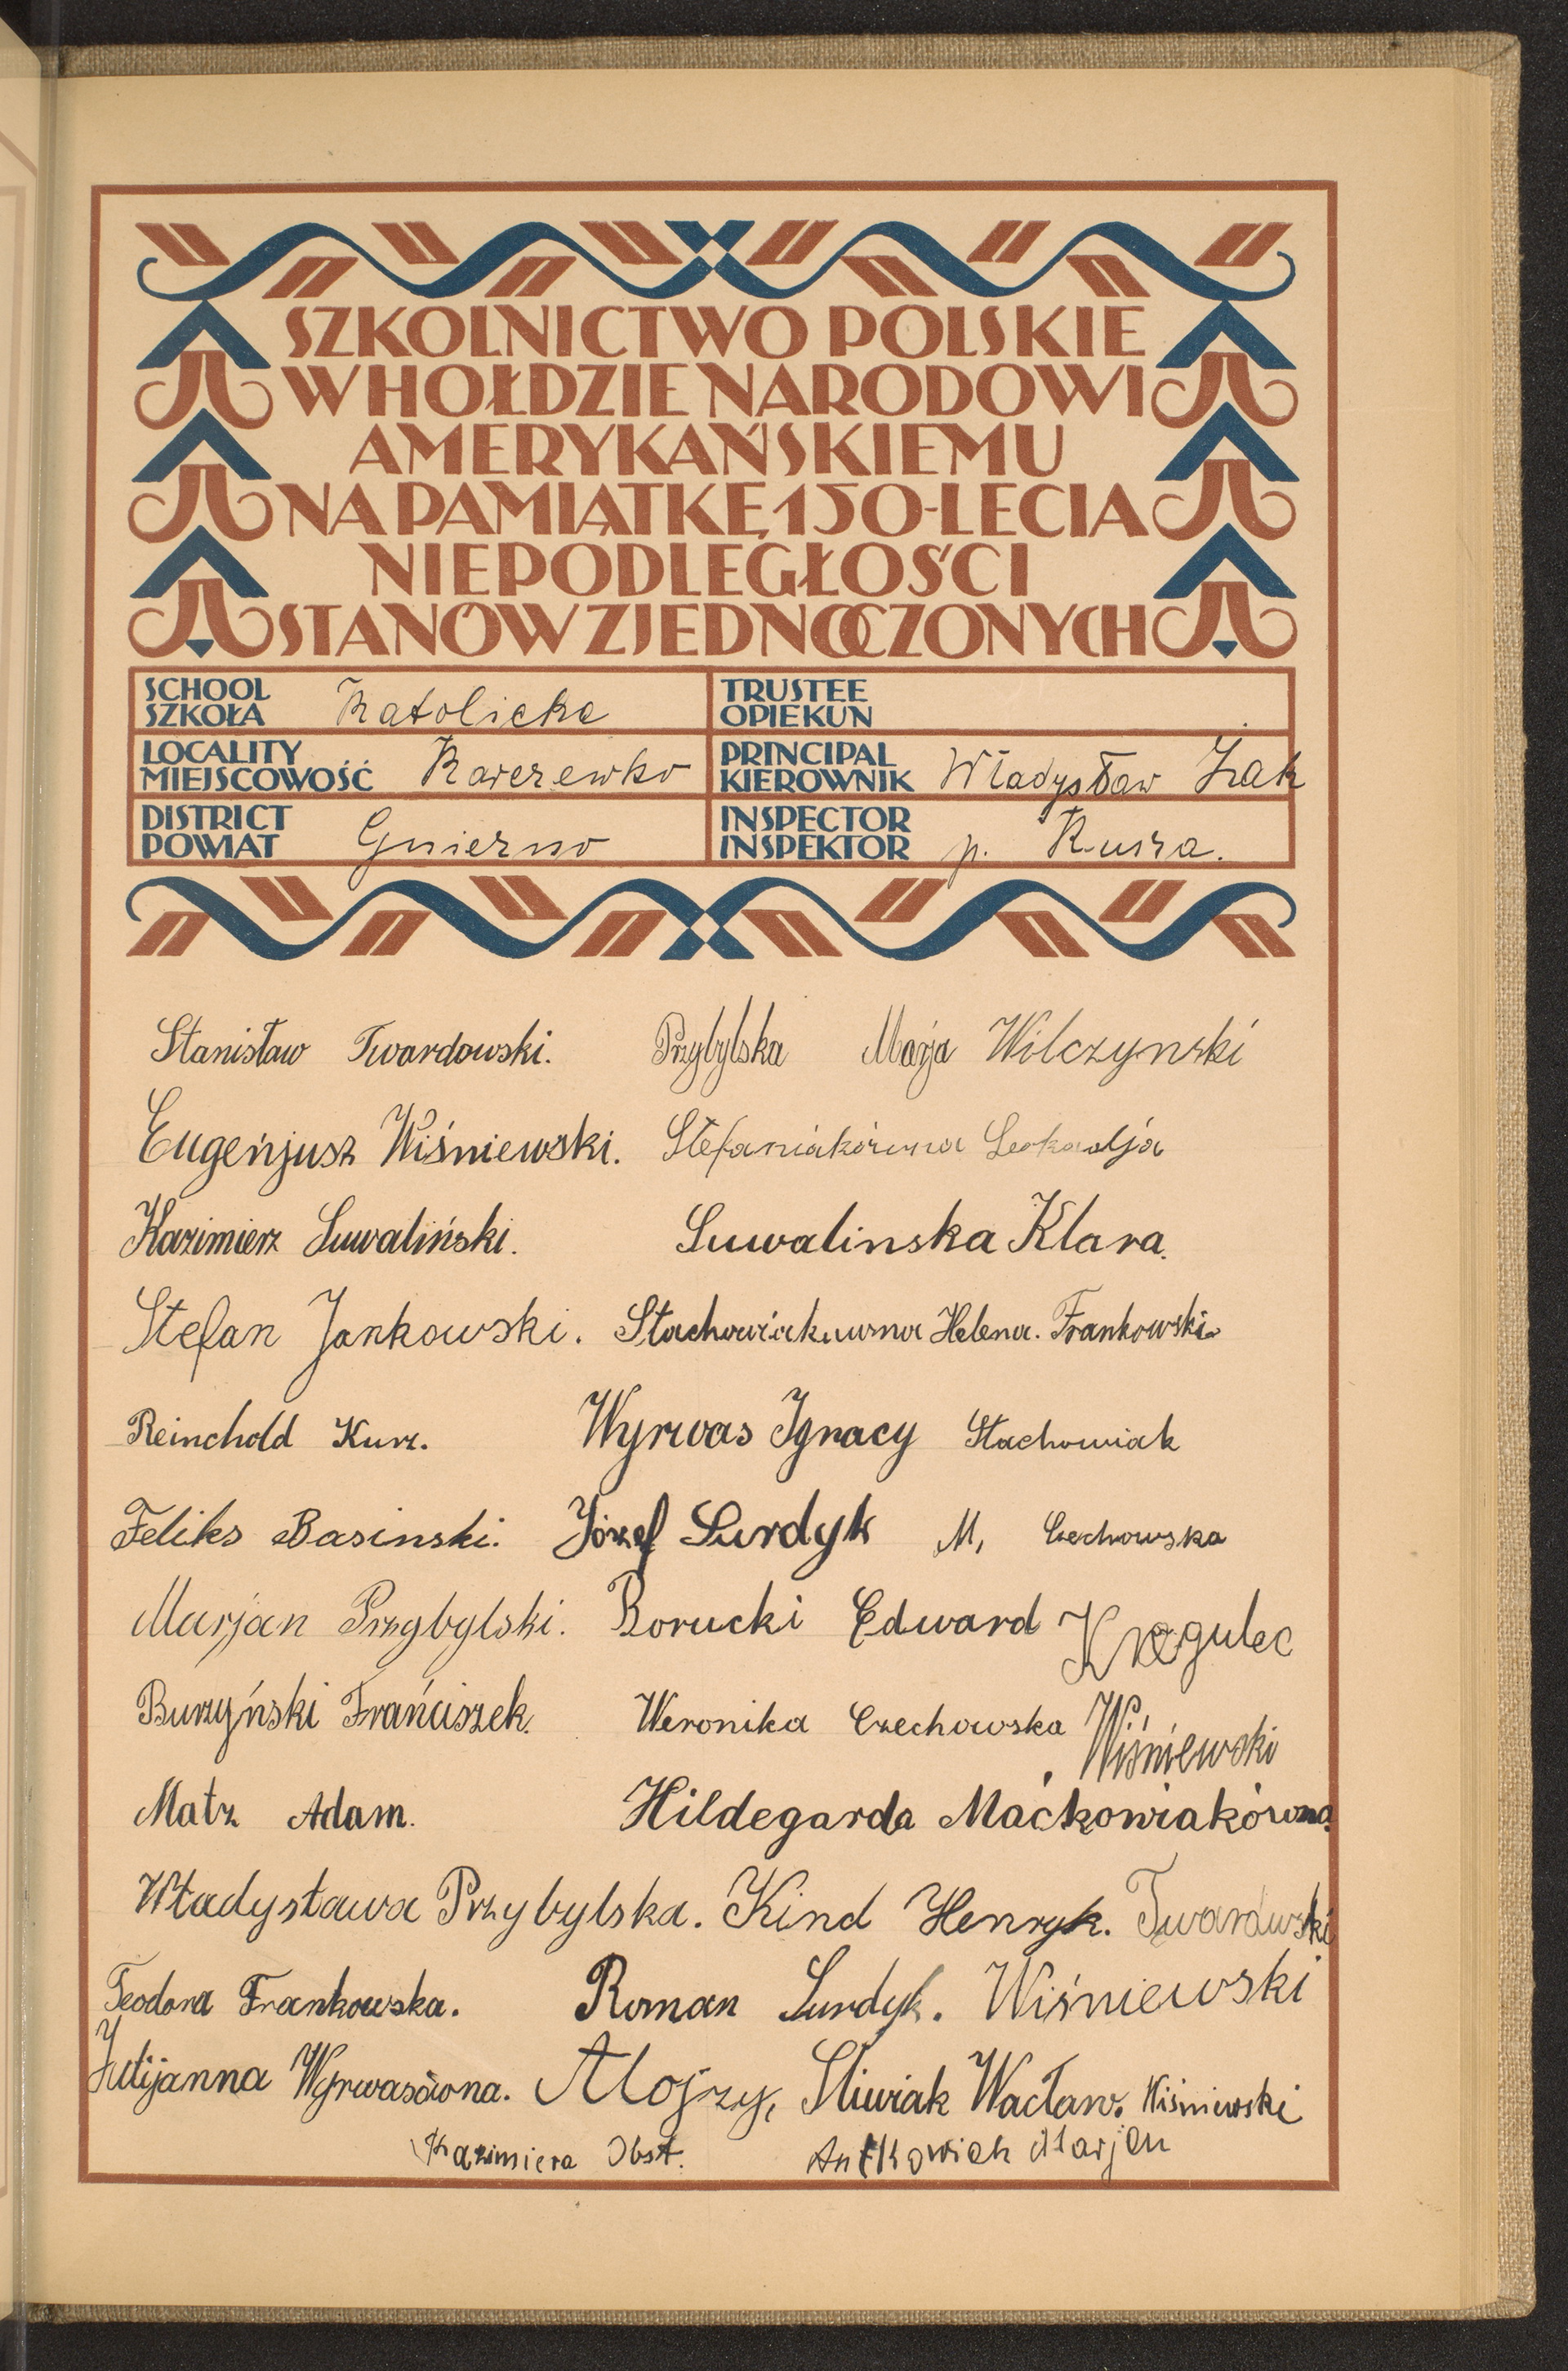 SZKOLNICTWO POLSKIE
W HOŁDZIE NARODOWI
AMERYKAŃSKIEMU
NA PAMIĄTKĘ 150-LECIA
NIEPODLEGŁOŚCI
STANÓW ZJEDNOCZONYCH
SCHOOL SZKOŁA Katolicka TRUSTEE OPIEKUN
LOCALITY MIEJSCOWOŚĆ Karczewko PRINCIPAL KIEROWNIK Władysław Żak
DISTRICT POWIAT Gniezno INSPECTOR INSPEKTOR p. Rusza.
Stanisław Twardowski. Przybylska Marja Wilczynski
Eugenjusz Wiśniewski. Stefaniakówna Leokadja
Kazimierz Suwaliński. Suwalinska Klara.
Stefan Jankowski. Stachowiakuwna Helena. Frankowski
Reinchold Kurz. Wyrwas Ignacy Stachowiak
Feliks Basinski. Józef Surdyk M, Czechowska
Marjan Przybylski. Borucki Edward Kregulec
Burzyński Franciszek. Weronika Czechowska Wiśniewski
Matz Adam. Hildegarda Maćkowiakówna.
Władysława Przybylska. Kind Henryk. Twardowski
Teodora Frankowska. Roman Surdyk. Wiśniewski
Julijanna Wyrwasówna. Alojzy, Śliwiak Wacław. Wiśniewski
Kazimiera Obst. Antkowiak Marjan